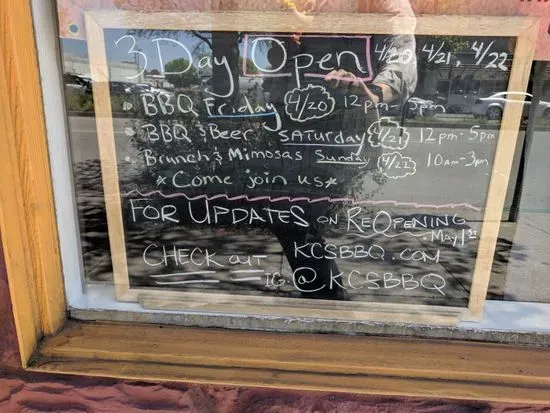 3 Day Open 4/20, 4/21, 4/22
• BBQ Friday 4/20 12pm-5pm
• BBQ & Beer SATURday 4/21 12pm-5pm
• Brunch & Mimosas Sunday 4/22 10am-3pm
* Come join us *
FOR UPDATES on REOPENING
May 1st
CHECK OUT KCSBBQ.COM
IG. @KCSBBQ